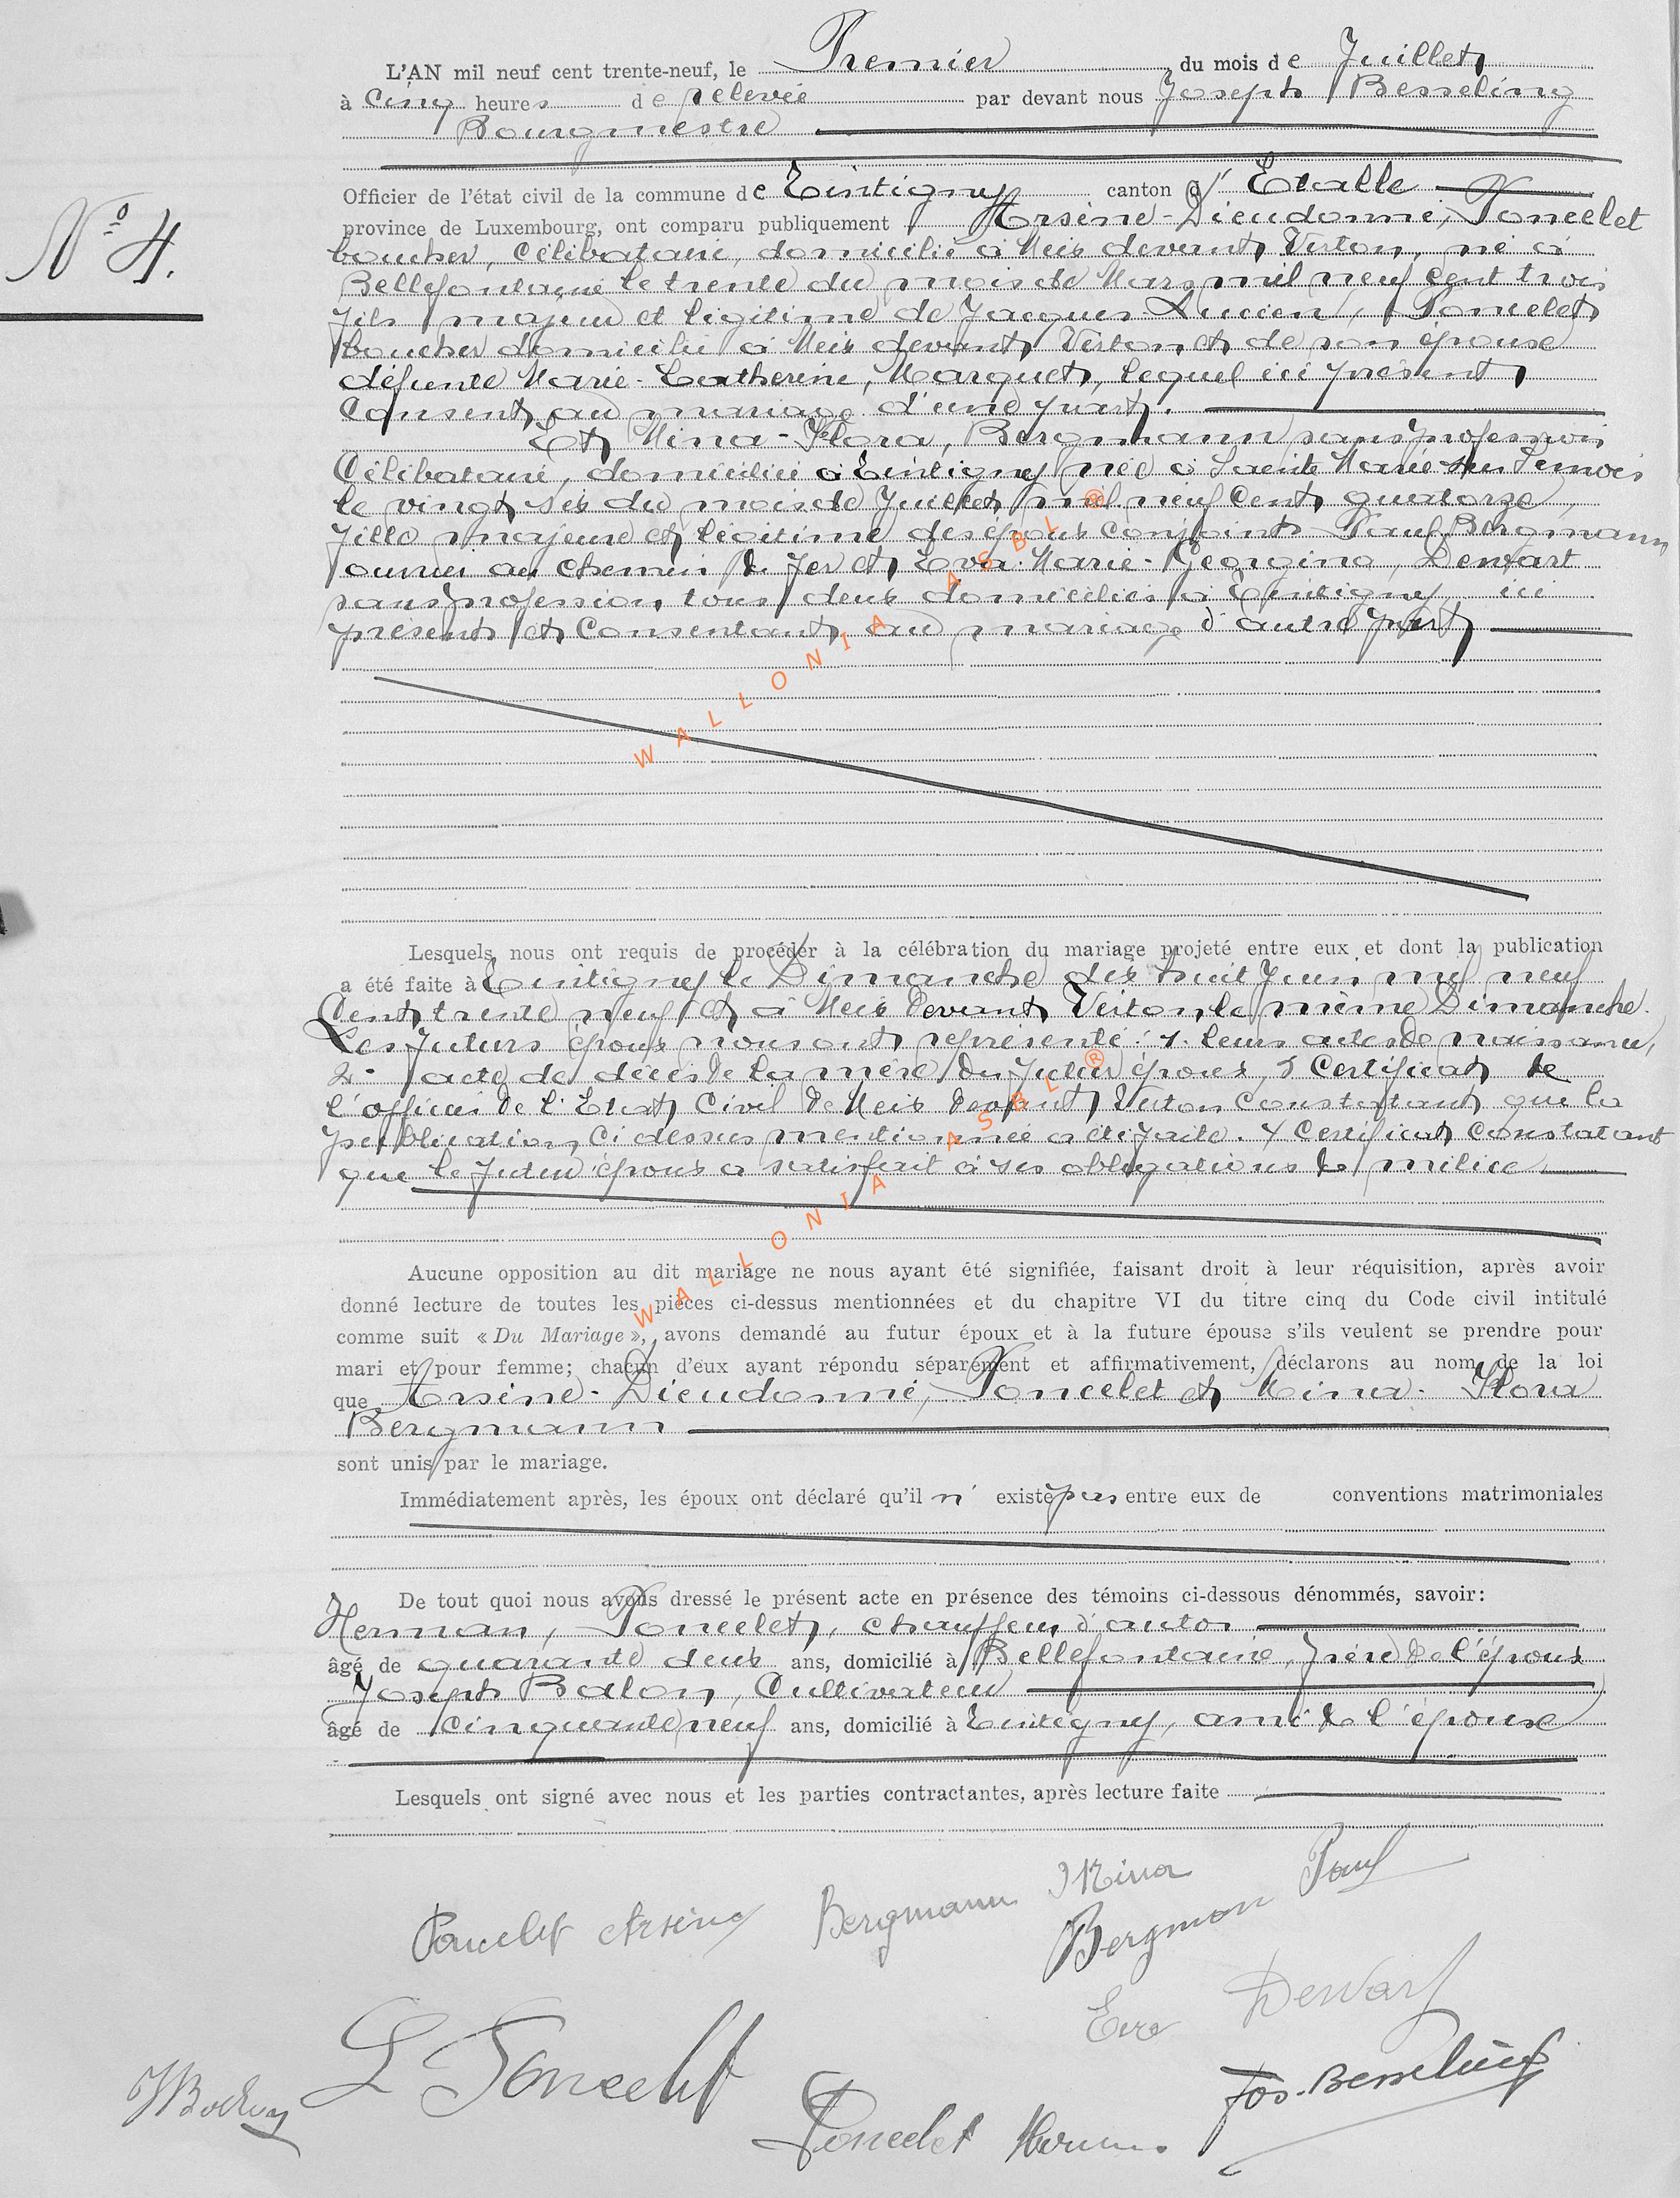 L'AN mil neuf cent trente-neuf, le Premier du mois de Juillet
à Cinq heures de relevée par devant nous Joseph Besseling
Bourgmestre
Officier de l'état civil de la commune de Tintigny canton d'Etalle
N° 4.
province de Luxembourg, ont comparu publiquement Arsène-Dieudonné, Poncelet
boucher, Célibataire, domicilié à Meix devant Virton, né à
Bellefontaine le trente du mois de Mars mil neuf cent trois
fils majeur et légitime de Jacques Lucien, Poncelet
boucher domicilié à Meix devant Virton et de son épouse
défunte Marie-Catherine, Marquet, lequel ici présent
Consent au mariage d'une part.
Et Mina-Flora, Bergmann sans profession
Célibataire, domiciliée à Tintigny née à Sainte Marie sur Semois
le vingt six du mois de Juillet mil neuf Cent quatorze,
fille majeure et légitime des époux conjoints Paul Bergmann
ouvrier au chemin de fer et Eva-Marie-Georgina, Dewart
sans profession, tous deux domiciliés à Tintigny, ici
présents et Consentant au mariage d'autre part
Lesquels nous ont requis de procéder à la célébration du mariage projeté entre eux et dont la publication
a été faite à Tintigny le Dimanche dix huit Juin mil neuf
Cent trente neuf et à Meix devant Virton le même Dimanche.
Les futurs époux nous ont représenté : 1. leurs actes de naissance,
2° acte de décès de la mère du futur époux, 3 Certificat de
l'officier de l'Etat Civil de Meix devant Virton Constatant que la
publication, Ci dessus mentionnée a été faite. 4 Certificat Constatant
que le futur époux a satisfait à ses obligations de milice
Aucune opposition au dit mariage ne nous ayant été signifiée, faisant droit à leur réquisition, après avoir
donné lecture de toutes les pièces ci-dessus mentionnées et du chapitre VI du titre cinq du Code civil intitulé
comme suit « Du Mariage », avons demandé au futur époux et à la future épouse s'ils veulent se prendre pour
mari et pour femme; chacun d'eux ayant répondu séparément et affirmativement, déclarons au nom de la loi
que Arsène-Dieudonné, Poncelet et Mina-Flora
Bergmann
sont unis par le mariage.
Immédiatement après, les époux ont déclaré qu'il n' existe pas entre eux de conventions matrimoniales
De tout quoi nous avons dressé le présent acte en présence des témoins ci-dessous dénommés, savoir:
Herman, Poncelet, chauffeur d'autos
âgé de quarante deux ans, domicilié à Bellefontaine, frère de l'époux
Joseph Balon, Cultivateur
âgé de Cinquante neuf ans, domicilié à Tintigny, ami de l'épouse
Lesquels ont signé avec nous et les parties contractantes, après lecture faite
Poncelet Arsène Bergmann Mina Bergman Paul
Eva Dewart
L Poncelet Jos. Besseling
Poncelet Herman
WALLONIA ASBL ®
WALLONIA ASBL ®